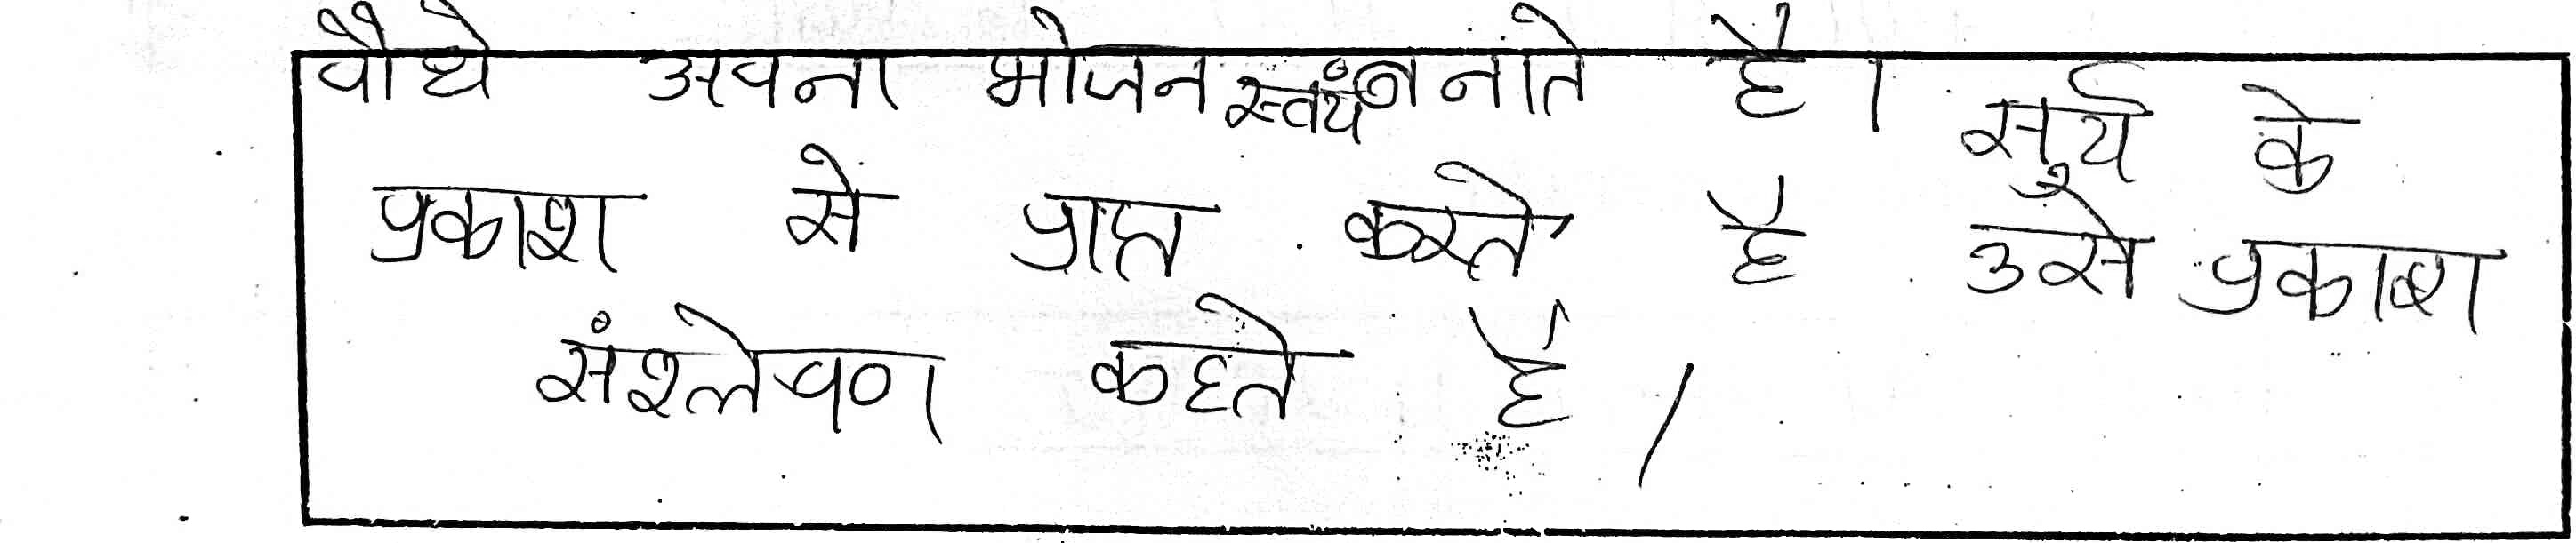 पौधे अपना भोजन स्वयं बनाते है। सुर्य के
प्रकाश से प्राप्त करते है उसे प्रकाश
संश्लेषण कहते है।